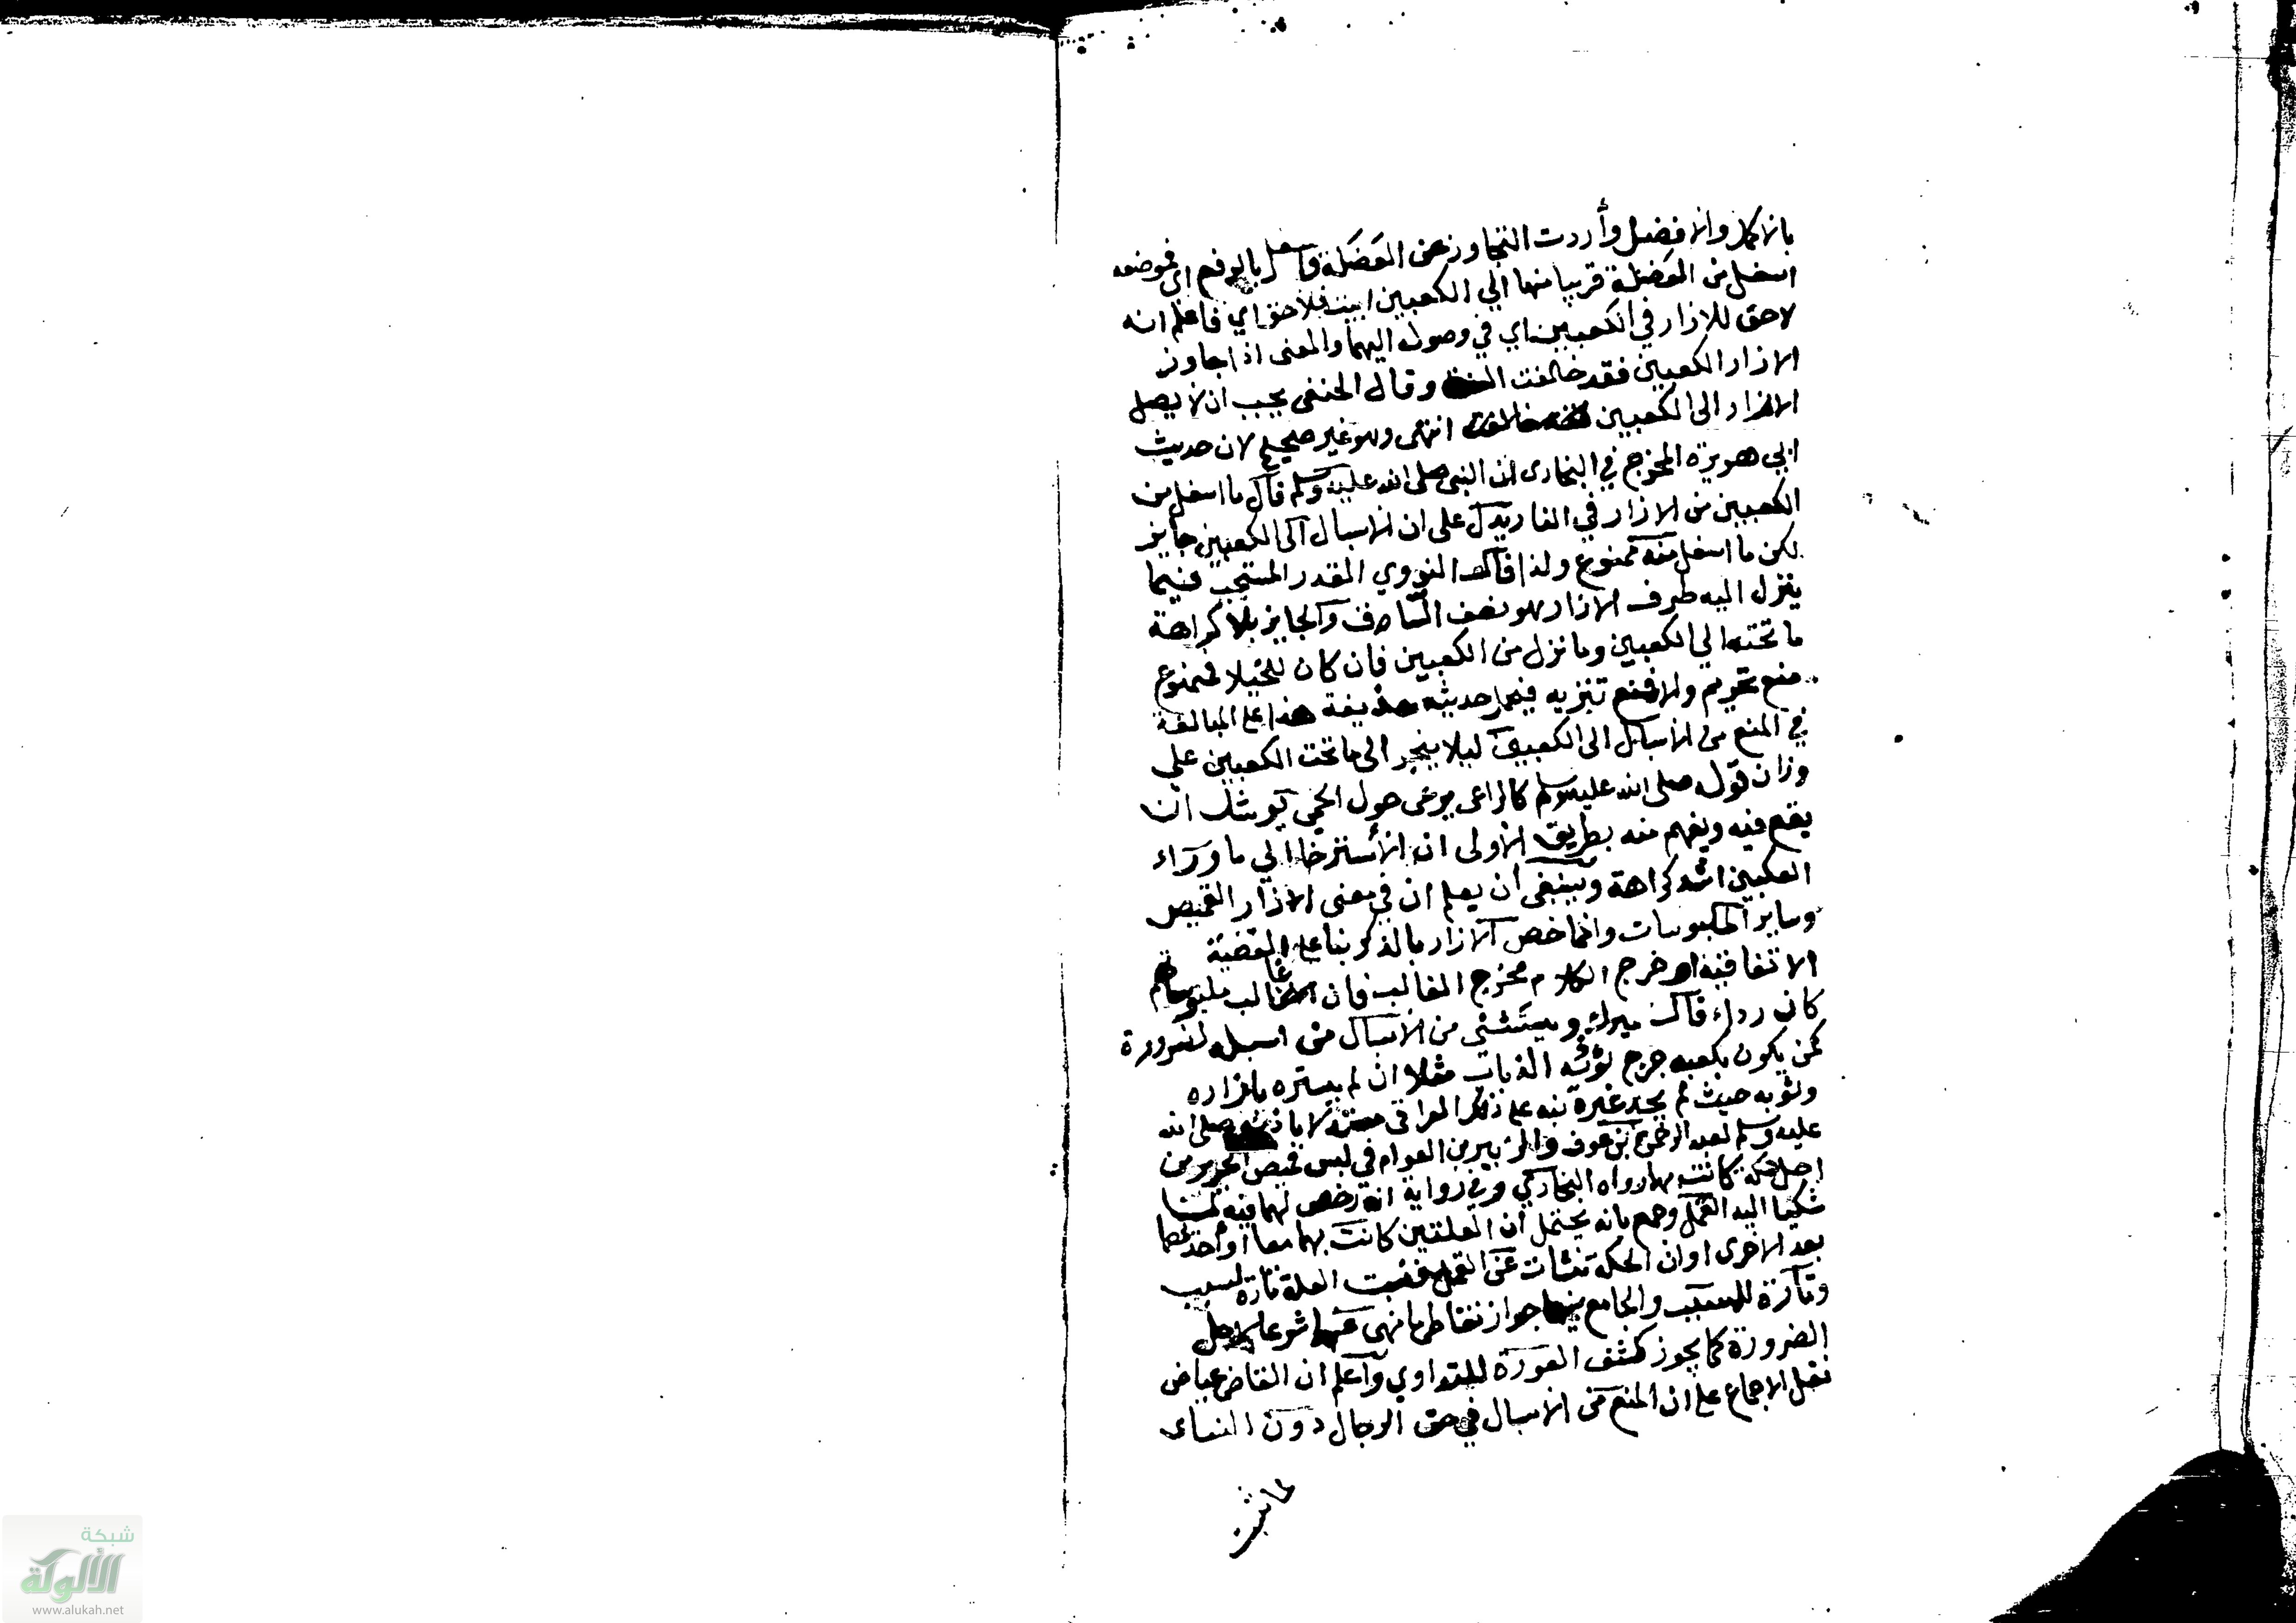 بالاكمل والافضل وأردت التجاوز عن العَضَلة فاسفل بالرفع اي فموضعه
اسفل من العضلة قريبا منها الي الكعبين ابيت فلا حق اي فاعلم انه
لا حق للازار في الكعبين اي في وصوله اليهما والمعنى اذا جاوز
الازار الكعبين فقد خالفت السنة وقال الحنفي يجب ان لا يصل
الازار الى الكعبين انتهى وهو غير صحيح لان حديث
ابي هريرة المخرج في البخارى ان النبي صلى الله عليه وسلم قال ما اسفل من
الكعبين من الازار في النار يدل على ان الاسبال الى الكعبين جايز
لكن ما اسفل منه ممنوع ولذا قال النووي القدر المستحب فيما
ينزل اليه طرف الازار هو نصف الساق والجايز بلا كراهة
ما تحته الي الكعبين وما نزل من الكعبين فان كان للخيلا فممنوع
منع تحريم والا فمنع تنزيه فيحمل حديث حذيفة هذا على المبالغة
في المنع من الاسبال الى الكعبين ليلا ينجر الى ما تحت الكعبين علي
وزان قوله صلى الله عليه وسلم كالراعى يرعى حول الحمي يوشك ان
يقع فيه ويفهم منه بطريق الاولى ان الأسترخا الي ما وراء
العكبين اشد كراهة وينبغى ان يعلم ان في معنى الازار القميص
وساير الملبوسات وانما خص الازار بالذكر بنا على القضية
الاتفاقية او خرج الكلام مخرج الغالب فان غالب ملبوساتهم
كان رداء قال ميرك ويستثنى من الاسبال من اسبله لضرورة
كمن يكون بكعبه جرح يؤذيه الذباب مثلا ان لم يستره بازاره
وثوبه حيث لم يجد غيره نبه على ذلك العراقي مستدلا باذنه صلى الله
عليه وسلم لعبد الرحمن بن عوف والزبير بن العوام في لبس قميص الحرير من
اجل حكة كانت بهما رواه البخاركي وفي رواية انه رخص لهما فيه لما
شكيا اليه القمل وجمع بانه يحتمل ان العلتين كانت بهما معا او احديهما
بعد الاخرى او ان الحكة تنشات عن القمل فنسبت العلة تارة للسبب
وتارة للمسبب والجامع بينهما جواز تعاطي ما نهى عنه شرعا لاجل
الضرورة كما يجوز كشف العورة للتداوي واعلم ان القاضي عياض
نقل الاجماع على ان المنع من الاسبال في حق الرجال دون النساء
شبكة
الألوكة
www.alukah.net